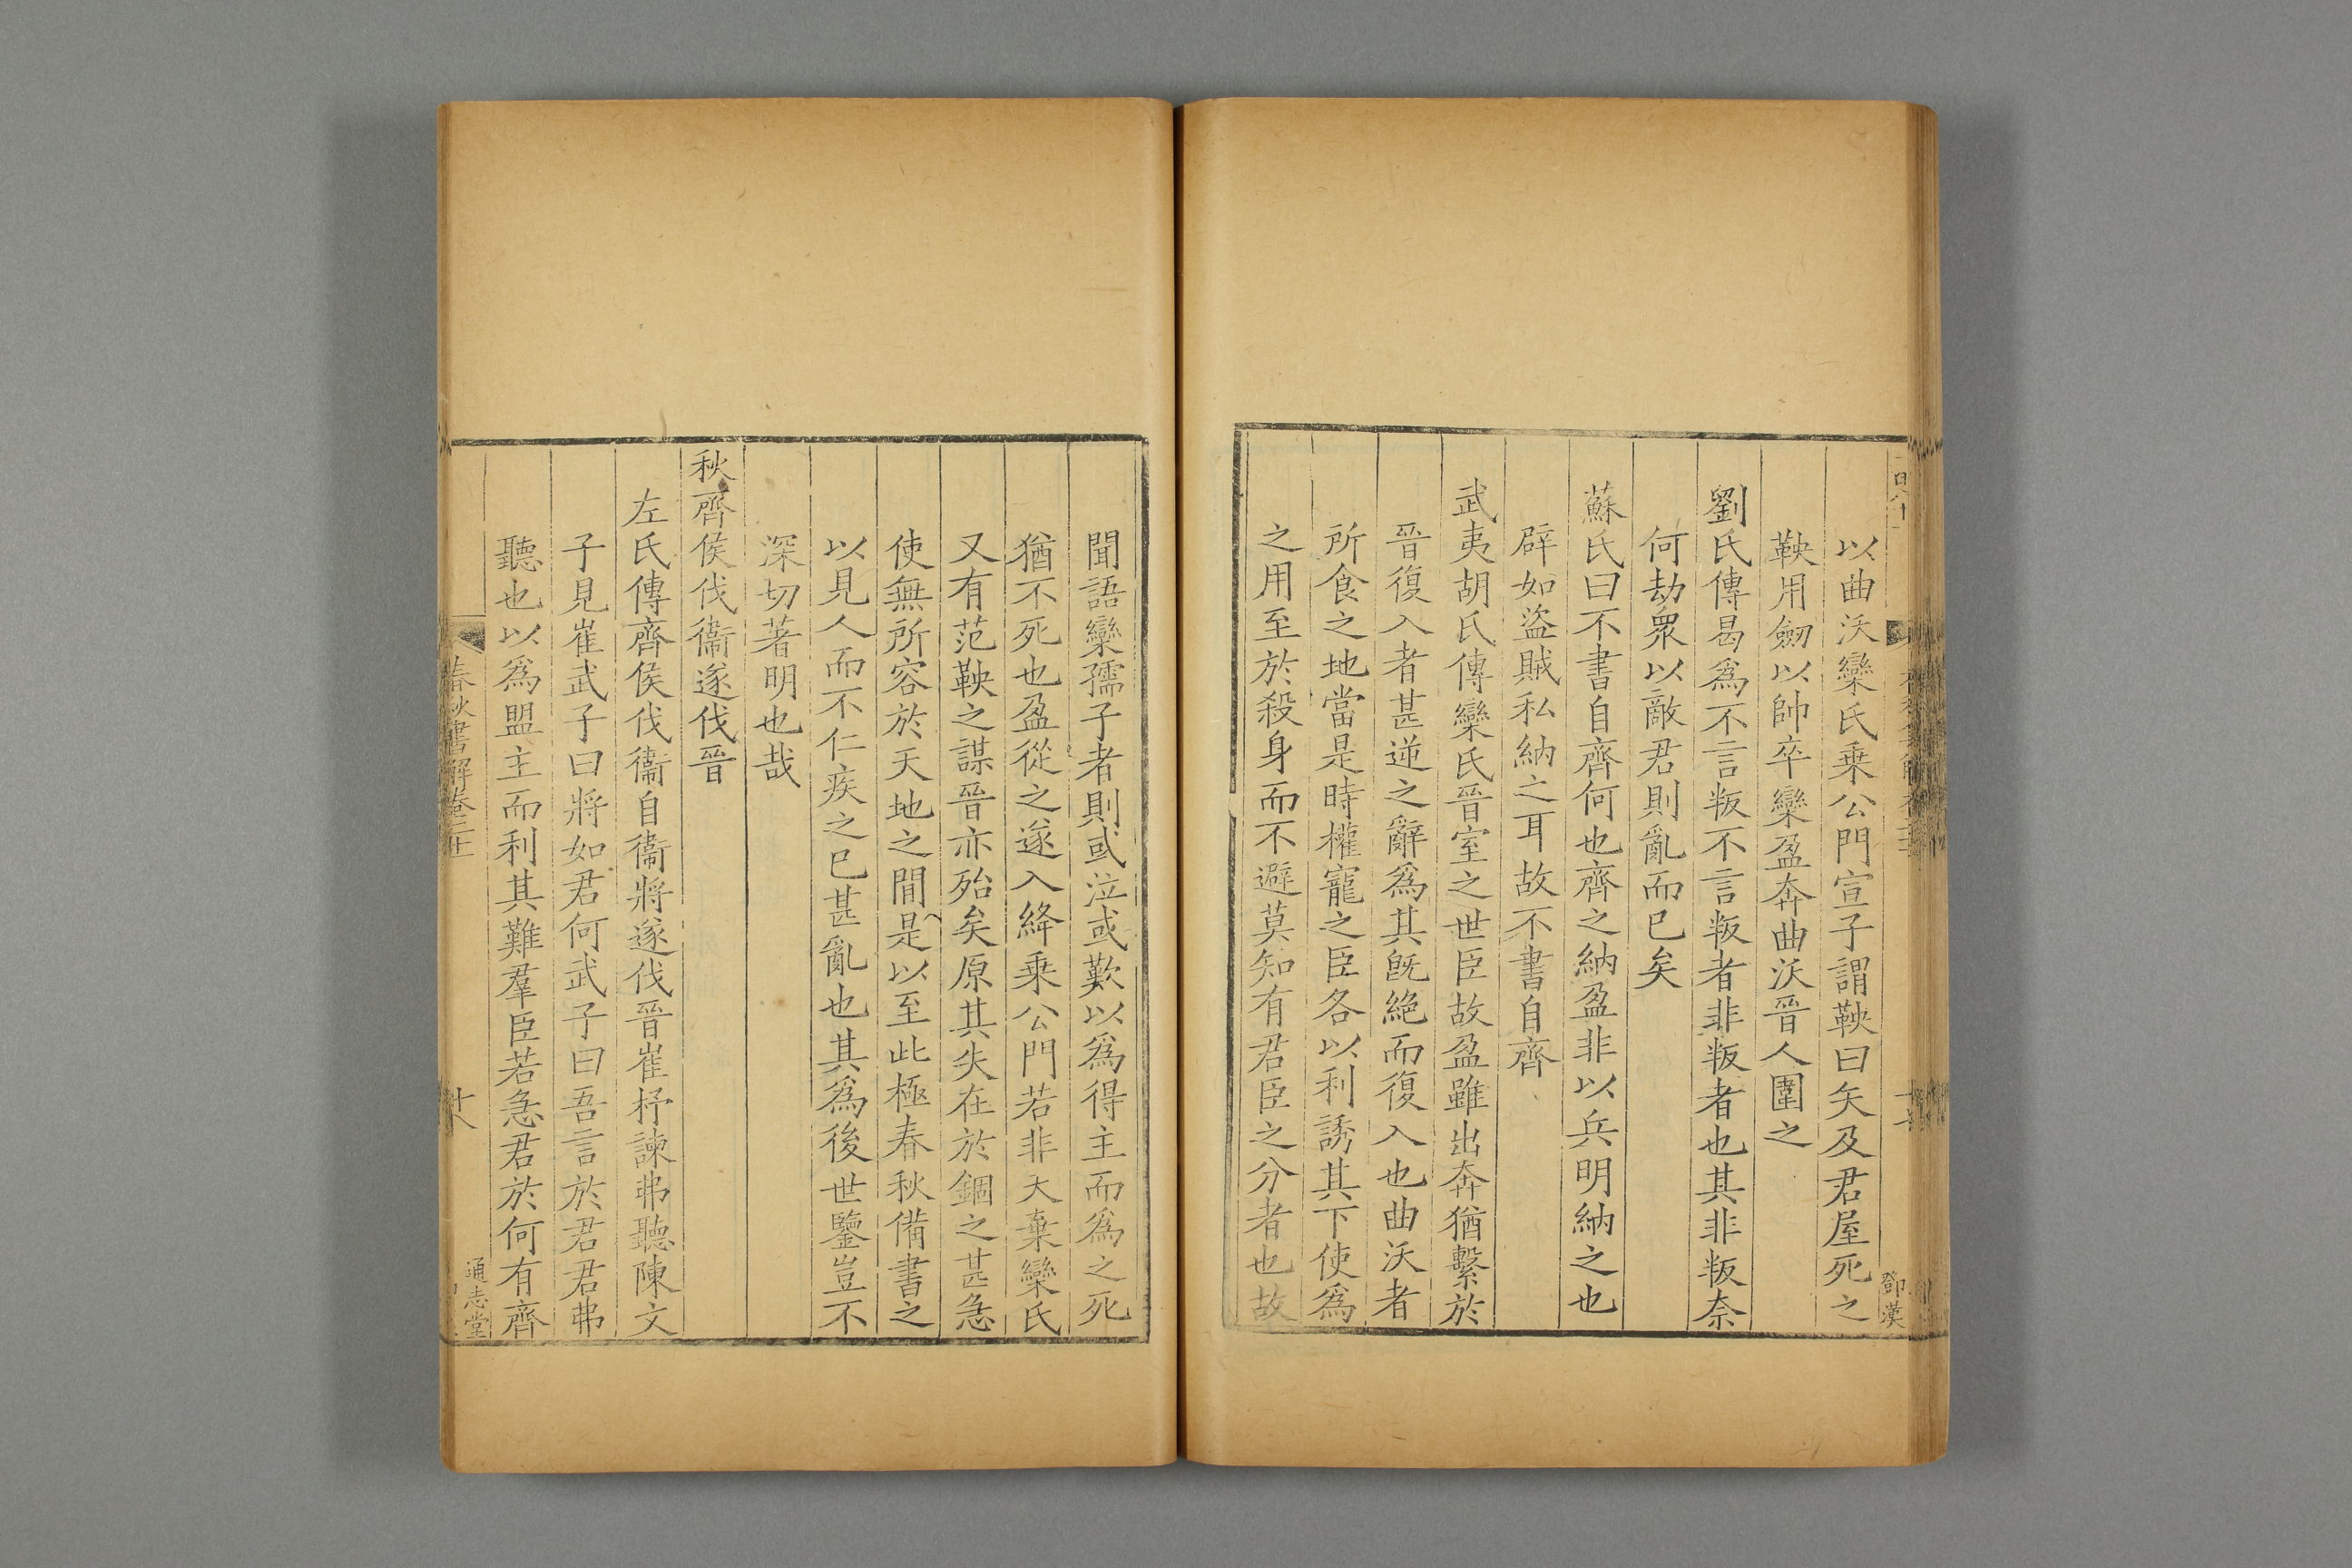 以曲沃欒氏乗公門宣子謂鞅曰矢及君屋死之
鞅用劒以帥卒欒盈奔曲沃晉人圍之
劉氏傳曷爲不言叛不言叛者非叛者也其非叛奈
何劫衆以敵君則亂而已矣
蘇氏曰不書自齊何也齊之納盈非以兵明納之也
辟如盜賊私納之耳故不書自齊
武夷胡氏傳欒氏晉室之世臣故盈雖出奔猶繫於
晉復入者甚逆之辭爲其旣絶而復入也曲沃者
所食之地當是時權寵之臣各以利誘其下使爲
之用至於殺身而不避莫知有君臣之分者也故
聞語欒孺子者則或泣或歎以爲得主而爲之死
猶不死也盈從之遂入絳乗公門若非天棄欒氏
又有范鞅之謀晉亦殆矣原其失在於錮之甚急
使無所容於天地之間是以至此極春秋備書之
以見人而不仁疾之已甚亂也其爲後世鑒豈不
深切著明也哉
秋齊侯伐衞遂伐晉
左氏傳齊侯伐衞自衞將遂伐晉崔杼諫弗聽陳文
子見崔武子曰將如君何武子曰吾言於君君弗
聽也以爲盟主而利其難羣臣若急君於何有齊
十八
通志堂
鄧漢